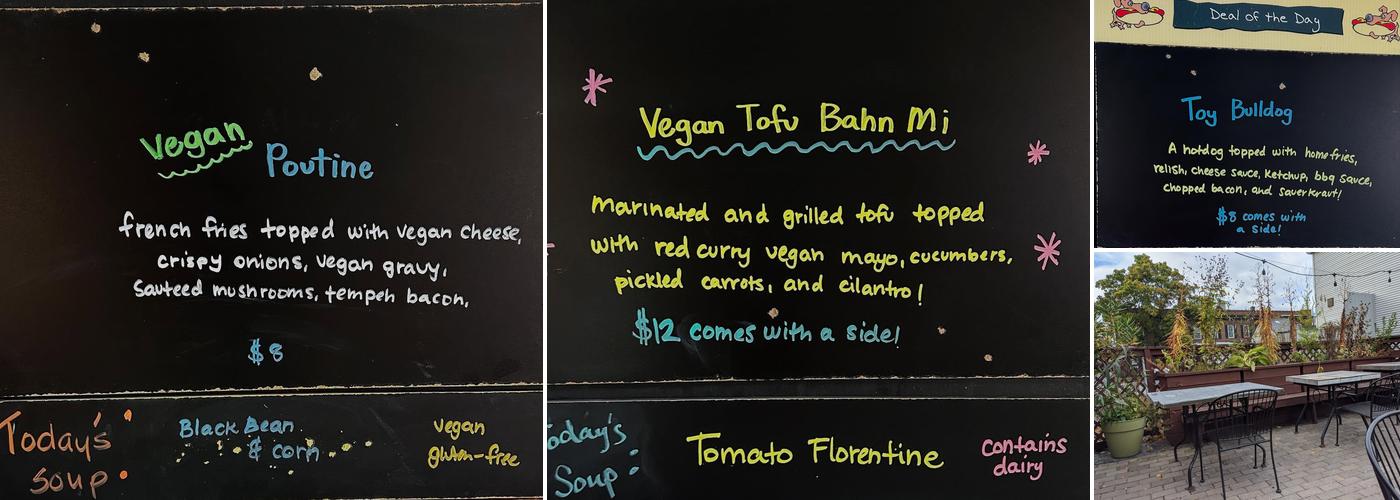 Vegan
Poutine
french fries topped with vegan cheese,
crispy onions, vegan gravy,
sauteed mushrooms, tempeh bacon,
$8
Today's
Soup:
Black Bean
& corn
vegan
gluten-free
Vegan Tofu Bahn Mi
marinated and grilled tofu topped
with red curry vegan mayo, cucumbers,
pickled carrots, and cilantro!
$12 comes with a side!
oday's
Soup:
Tomato Florentine
contains
dairy
Deal of the Day
Toy Bulldog
A hotdog topped with home fries,
relish, cheese sauce, ketchup, bbq sauce,
chopped bacon, and sauerkraut!
$8 comes with
a side!